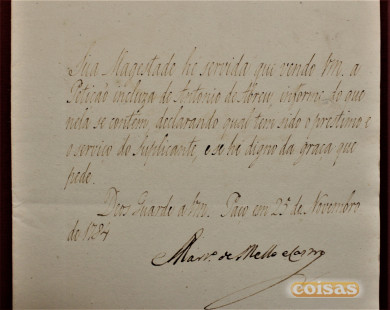 Sua Magestade he servida que vendo Vm. a
Petição incluza de Antonio de Abreu, informe do que
nela se contem, declarando qual tem sido o prestimo e
o serviço do Suplicante, e se he digno da graça que
pede.
Deos Guarde a Vm. Paço em 25 de Novembro
de 1784
Martº. de Mello e Castro
coisas